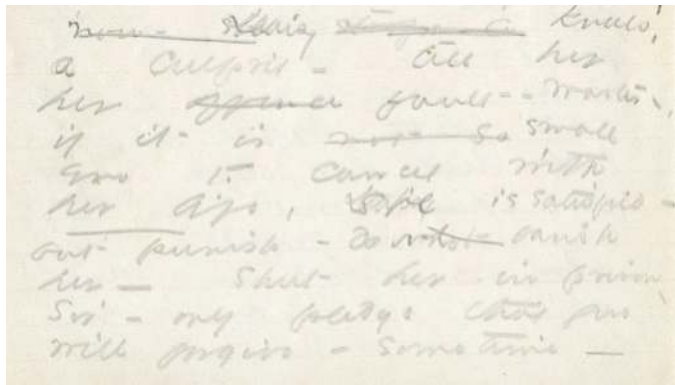 now - stain, stoops a knows,
a culprit - tell her
her offence fault - - Master -
if it is not so small
eno' to cancel with
her life, she is satisfied -
but punish - do not banish
her - Shut her in prison
Sir - only pledge that you
will forgive - sometime -